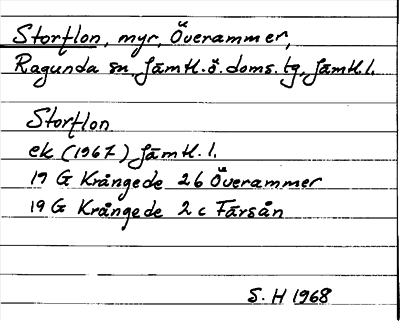 Storflon, myr, Överammer,
Ragunda sn, Jämtl.ö.doms.tg, Jämtl.l.
Storflon
ek (1967) Jämtl. l.
19 G Krångede 2b Överammer
19 G Krångede 2c Färsån
S. H 1968